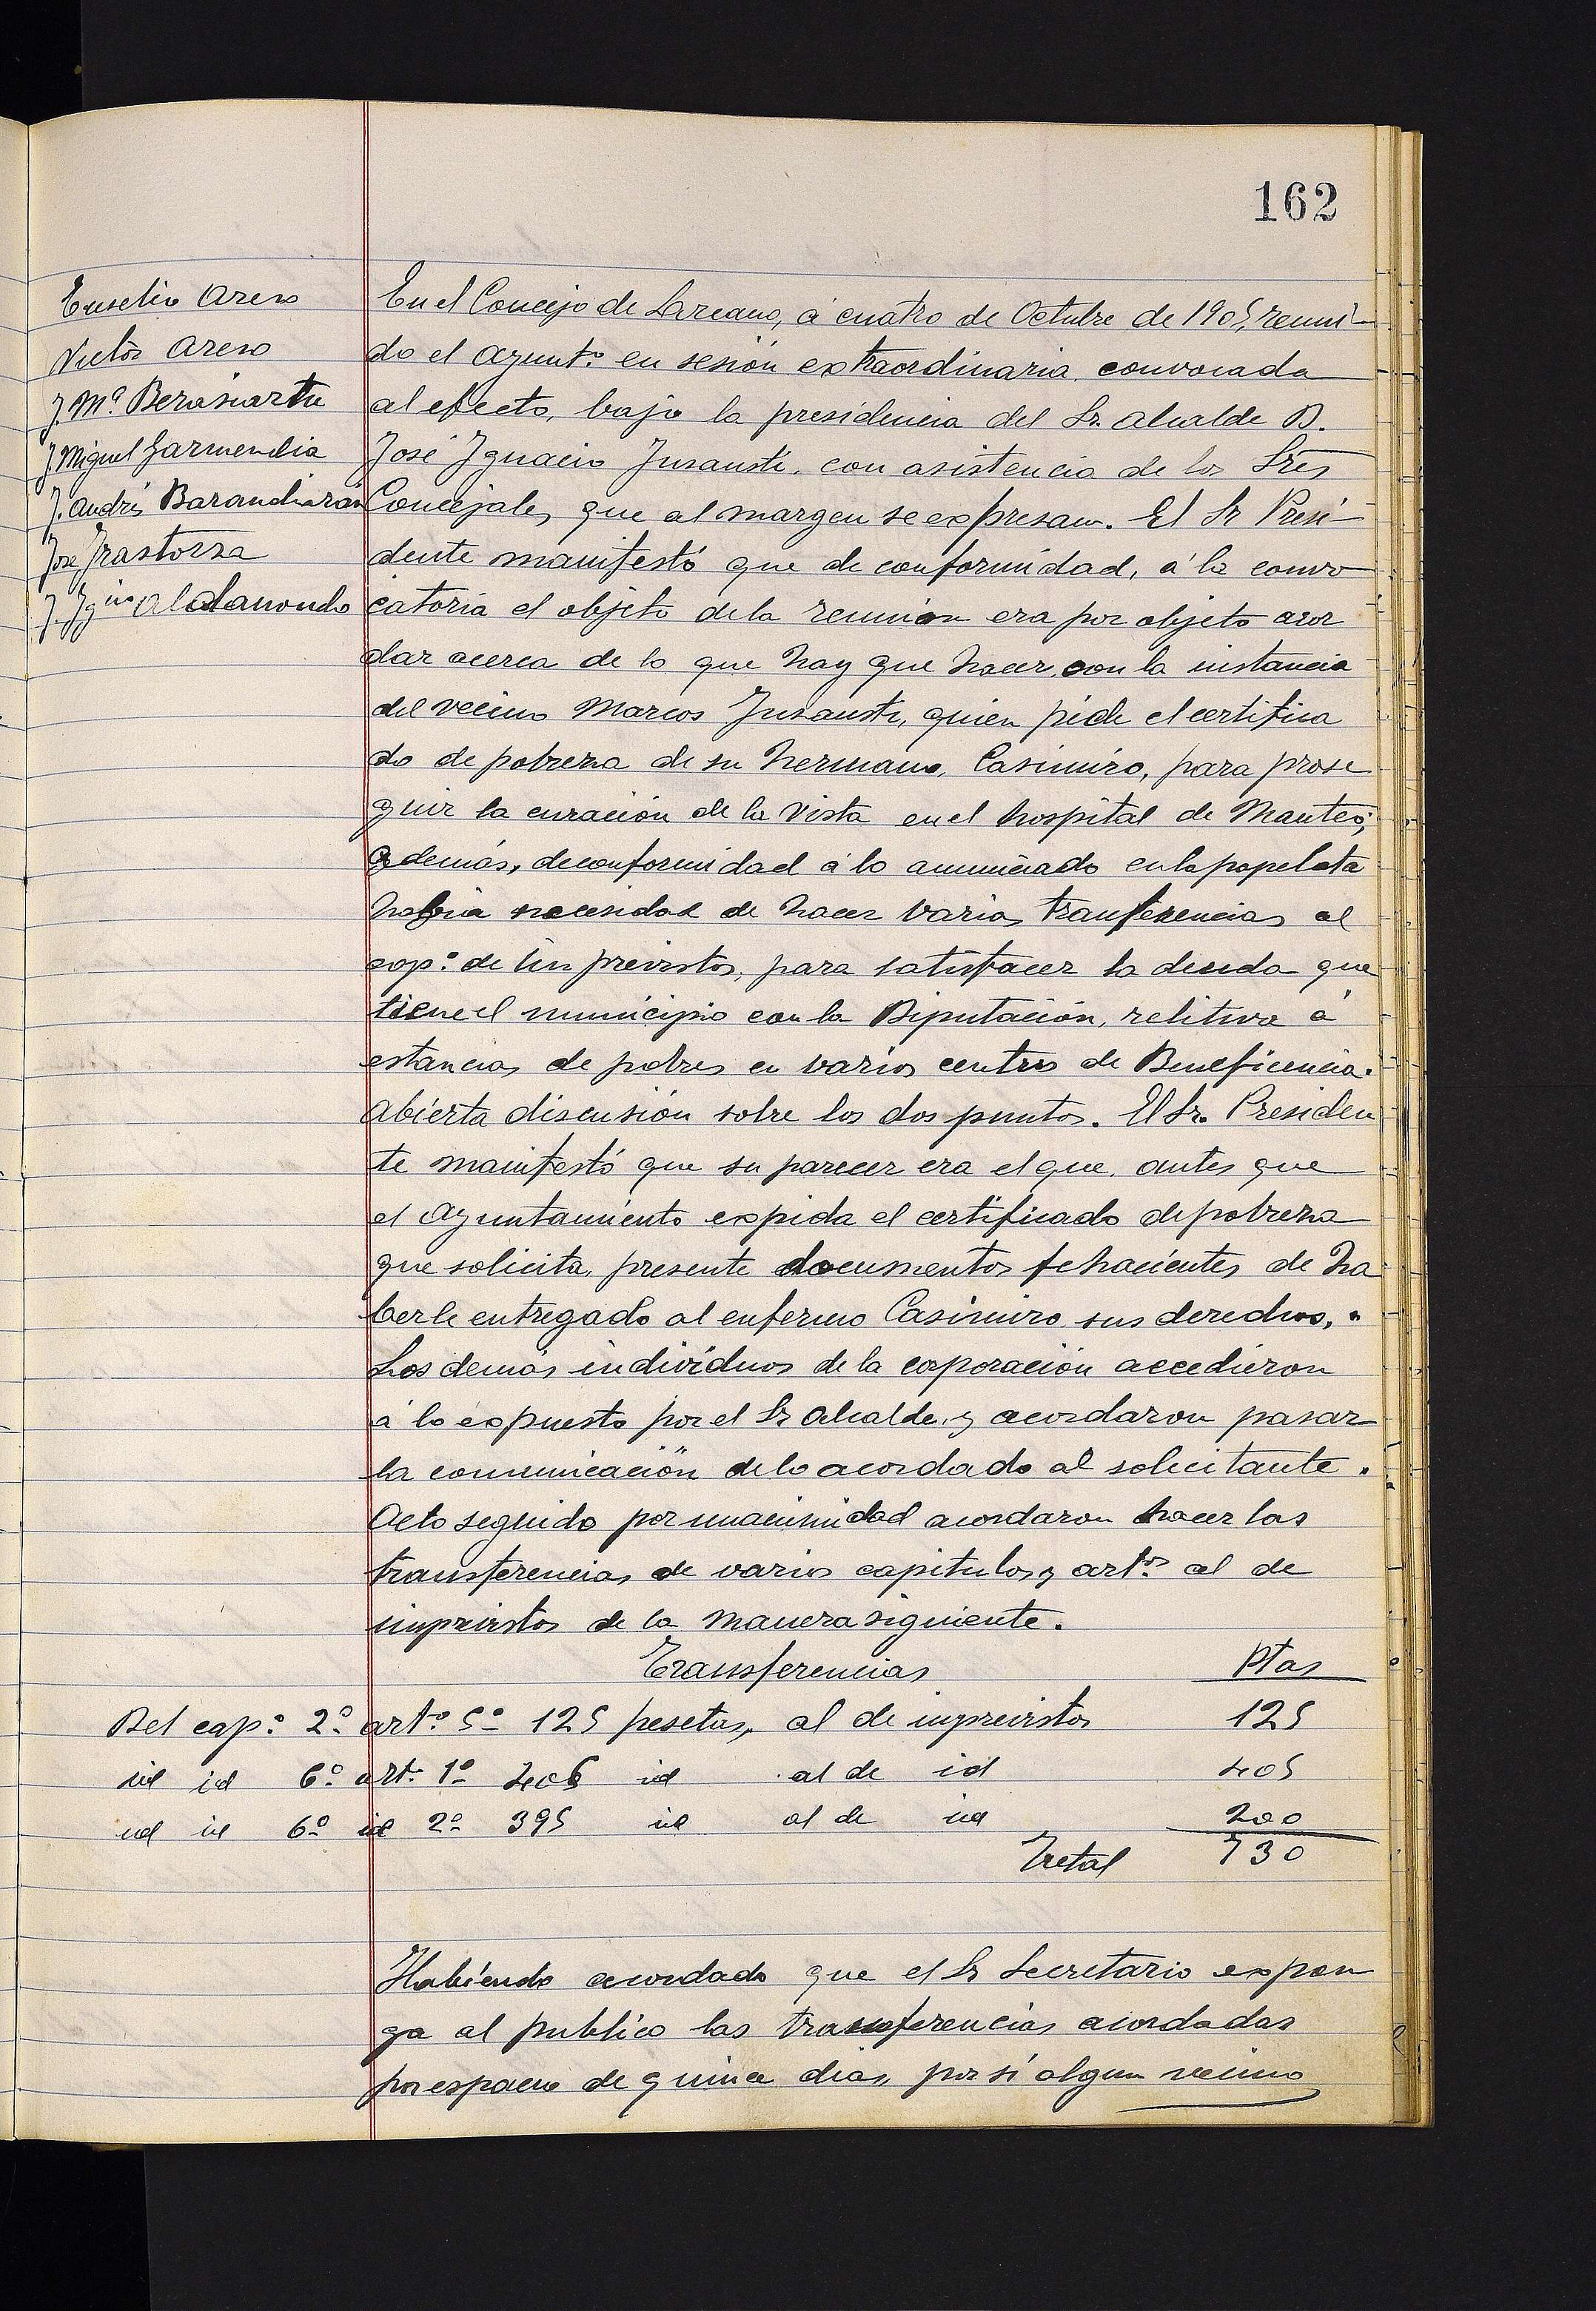 162
Eusebio Areso
Victor Areso
J. Mª. Berasiartu
J. Miguel Garmendia
J. Andrés Barandiarán
José Irastorza
J. Igno Aldanondo
En el Concejo de Lazcano, á cuatro de Octubre de 1905, reuni-
do el Ayuntº. en sesión extraordinaria convocada
al efecto, bajo la presidencia del Sr. Alcalde D.
José Ignacio Insausti, con asistencia de los Sres
Concejales, que al margen se expresan. El Sr Presi-
dente manifestó que de conformidad, á la convo
catoria el objeto de la reunión era por objeto acor
dar acerca de lo que hay que hacer, con la instancia
del vecino Marcos Insausti, quien pide el certifica
do de pobreza de su hermano, Casimiro, para prose
guir la curación de la vista en el hospital de Manteo;
Además, de conformidad á lo anunciado en la papeleta
habia necesidad de hacer varias tranferencias al
cap.º de Imprevistos, para satisfacer la deuda que
tiene el municipio con la Diputación, relitiva á
estancias de pobres en varios centros de Beneficencia.
Abierta discusión sobre los dos puntos. El Sr. Presiden
te manifestó que su parecer era el que, antes que
el Ayuntamiento expida el certificado de pobreza
que solicita, presente documentos fehacientes de ha
berle entregado al enfermo Casimiro sus derechos. "
Los demás individuos de la corporación accedieron
á lo expuesto por el Sr Alcalde, y acordaron pasar
la comunicación de lo acordado al solicitante.
Acto seguido por unanimidad acordaron hacer las
transferencias de varios capitulos y artos. al de
imprevistos de la manera siguiente.
Transferencias Ptas
Del cap.º 2º. art.º 5º 125 pesetas, al de imprevistos 125
id id 6º art. 1º 405 id al de id 405
id id 6º id 2º 395 id al de id 200
Total 730
Habiendo acordado que el Sr Secretario expon
ga al publico las transferencias acordadas
por espacio de quince dias, por si algun vecino